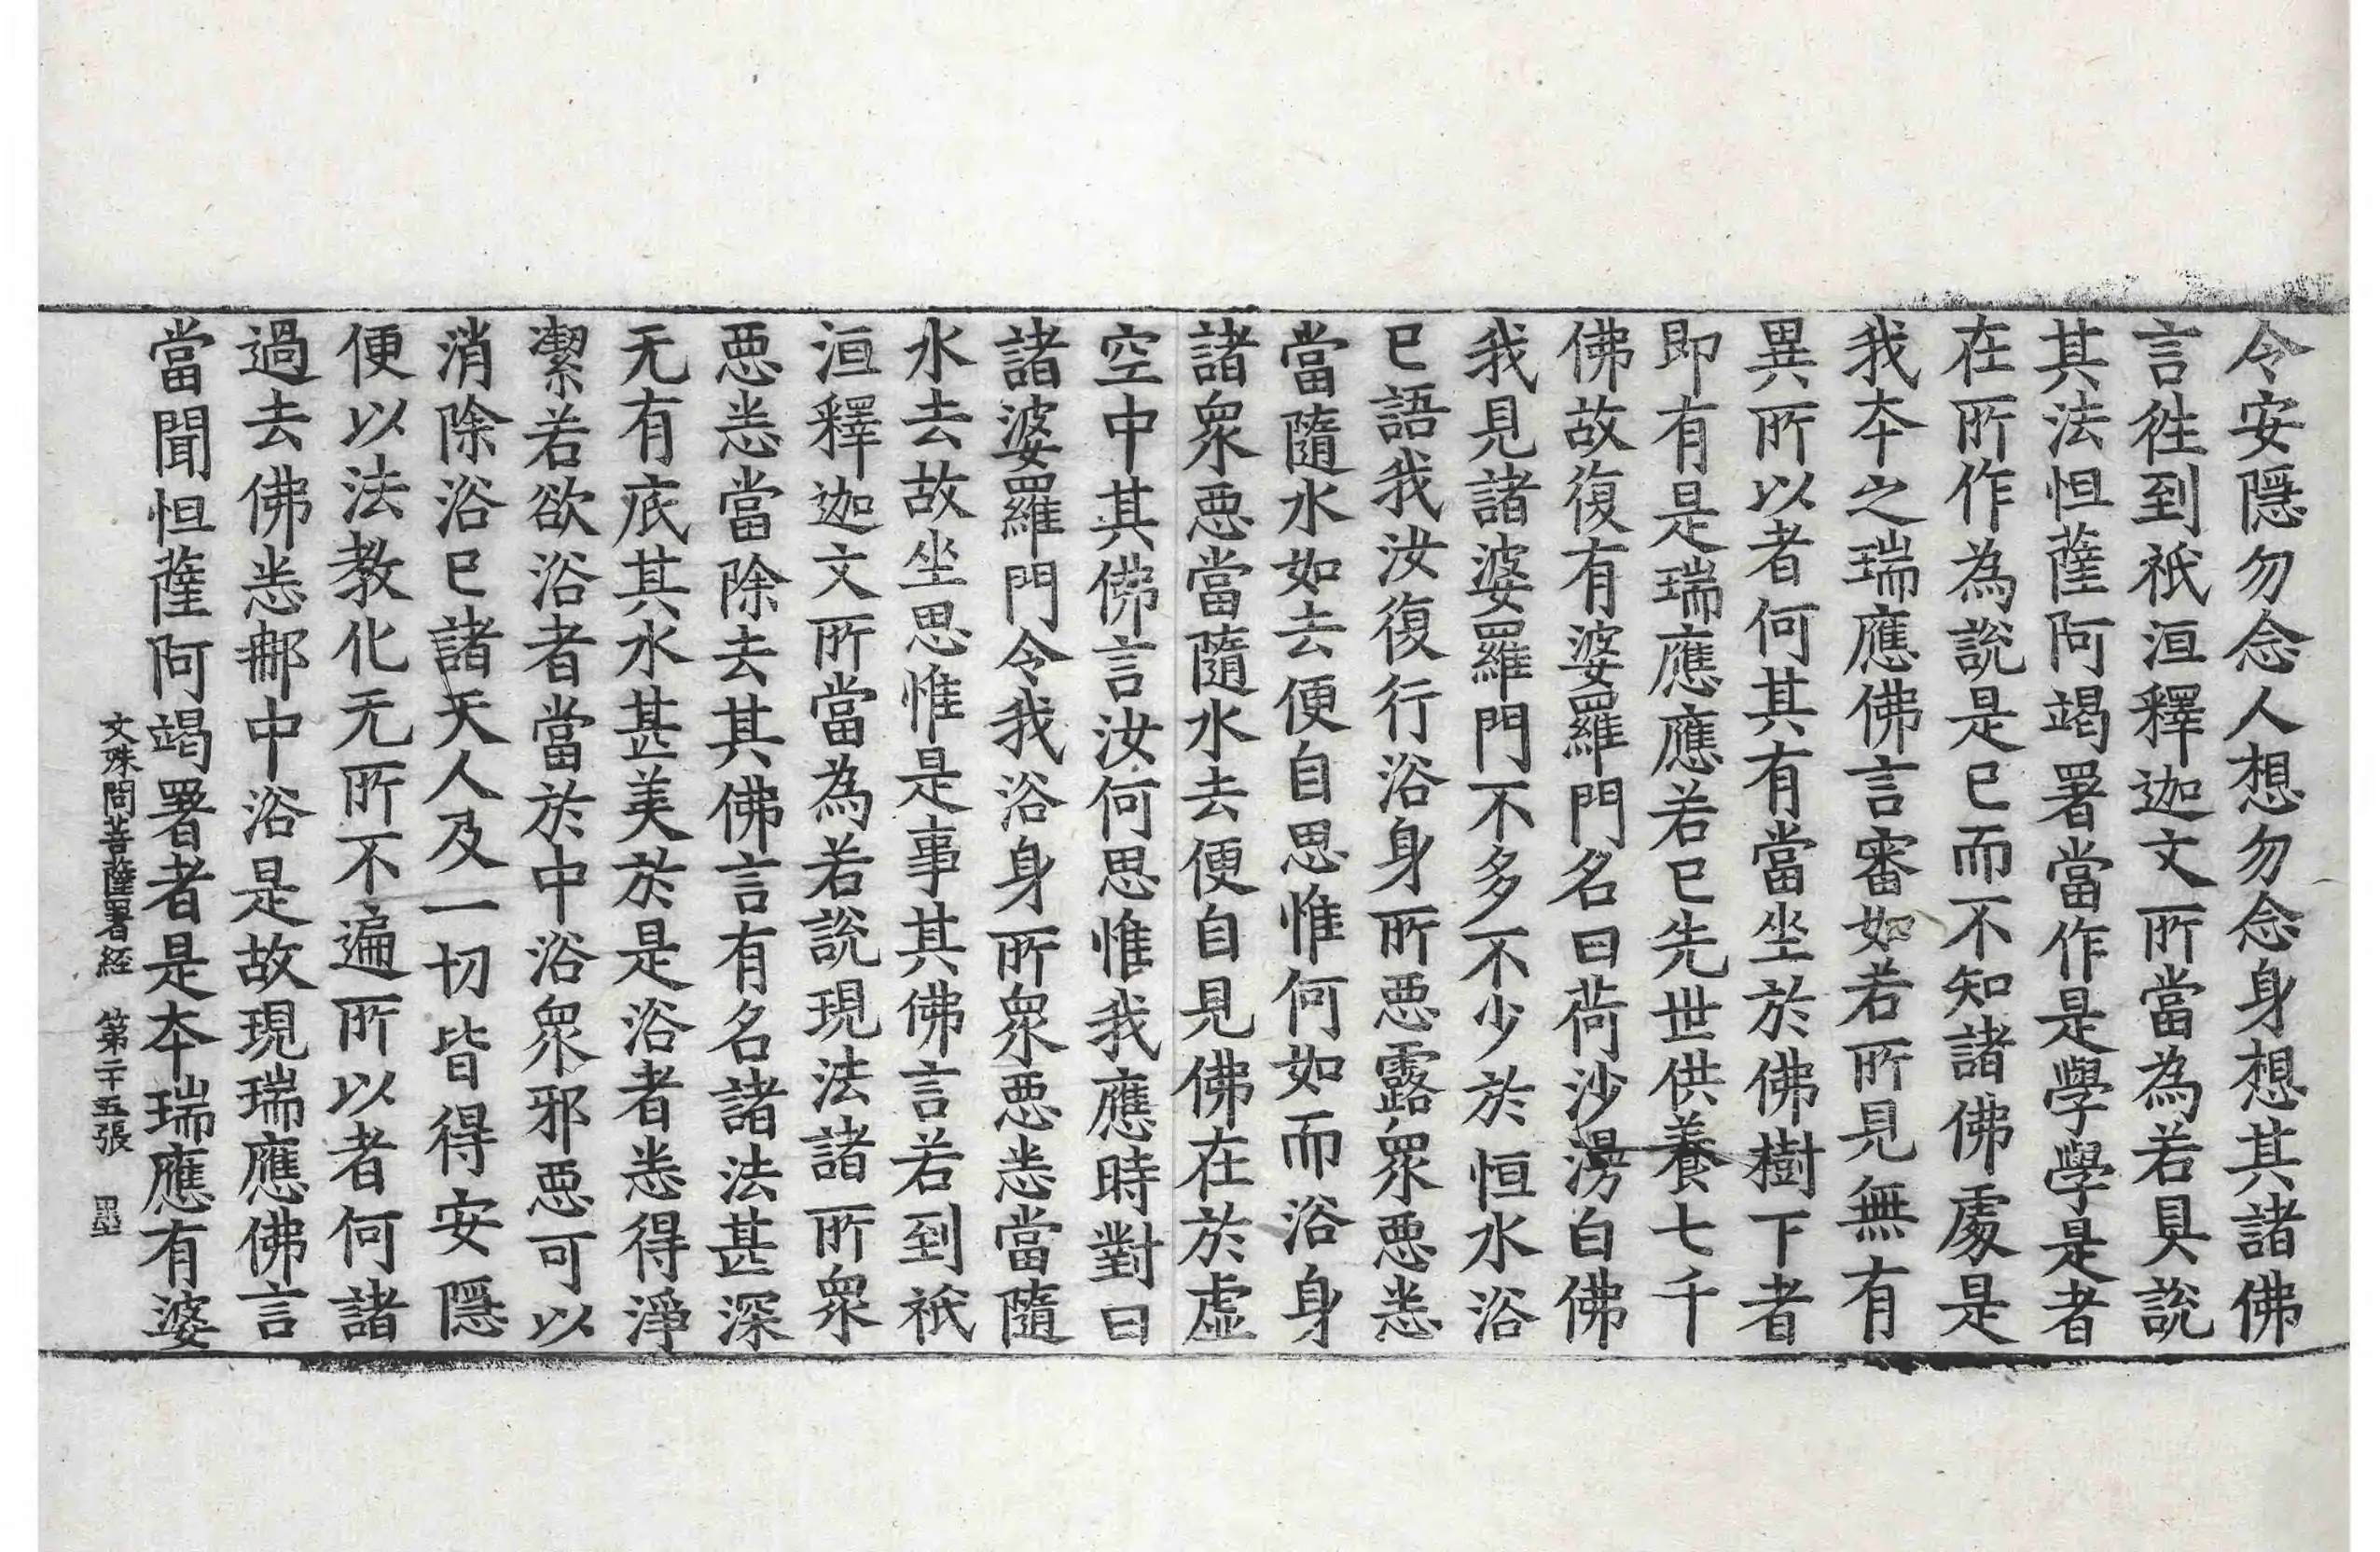 令安隱勿念人想勿念身想其諸佛
言徃到祇洹釋迦文所當為若具說
其法怛薩阿竭署當作是學學是者
在所作為說是已而不知諸佛處是
我夲之瑞應佛言審如若所見無有
異所以者何其有當坐於佛樹下者
即有是瑞應應若已先世供養七千
佛故復有婆羅門名曰荷沙漡白佛
我見諸婆羅門不多不少於恒水浴
已語我汝復行浴身所惡露眾惡悉
當隨水如去便自思惟何如而浴身
諸眾惡當隨水去便自見佛在於虛
空中其佛言汝何思惟我應時對曰
諸婆羅門令我浴身所眾惡悉當隨
水去故坐思惟是事其佛言若到祇
洹釋迦文所當為若說現法諸所眾
惡悉當除去其佛言有名諸法甚深
无有底其水甚美於是浴者悉得淨
潔若欲浴者當於中浴眾邪惡可以
消除浴已諸天人及一切皆得安隱
便以法教化无所不遍所以者何諸
過去佛悉於中浴是故現瑞應佛言
當聞怛薩阿竭署者是夲瑞應有婆
文殊問菩薩署經 第二十五張